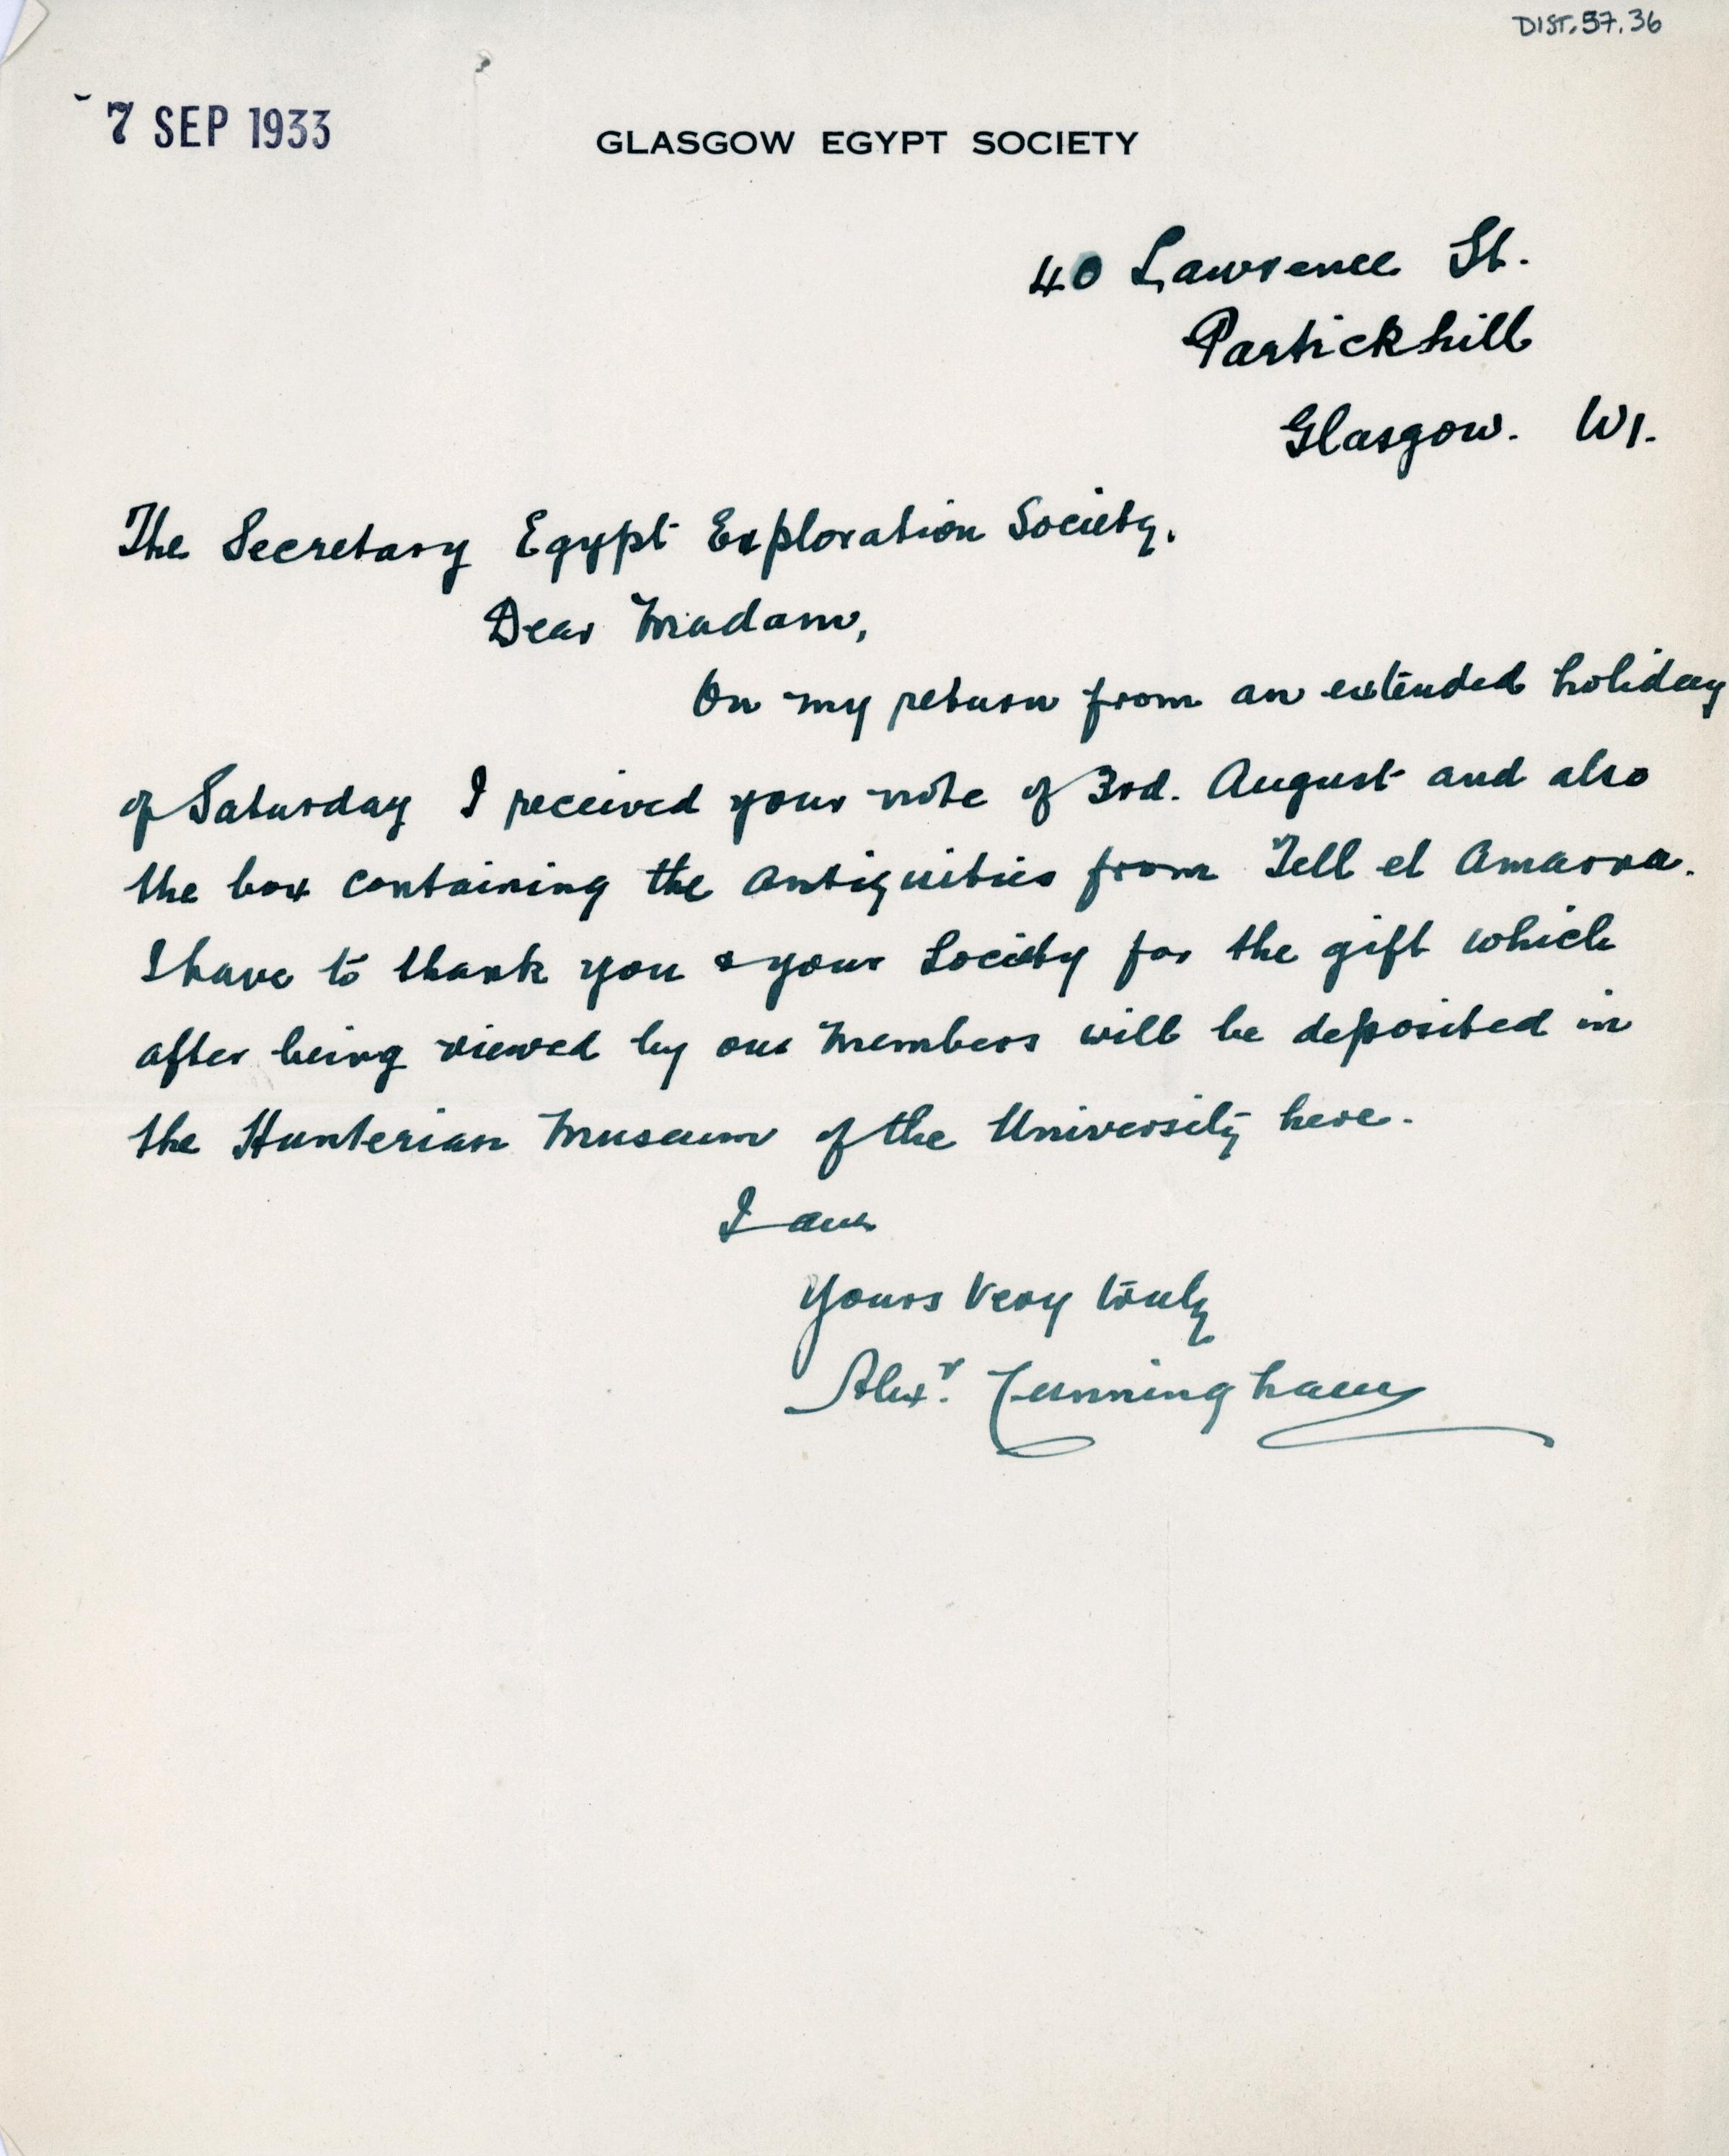 DIST.57.36
7 SEP 1933
GLASGOW EGYPT SOCIETY
40 Lawrence St.
Partickhill
Glasgow. W1.
The Secretary Egypt Exploration Society.
Dear Madam,
On my return from an extended holiday
of Saturday I received your note of 3rd. August and also
the box containing the antiquities from Tell el Amarna.
I have to thank you & your Society for the gift which
after being viewed by our Members will be deposited in
the Hunterian Museum of the University here.
I am
Yours Very truly
Alexr. Cunningham